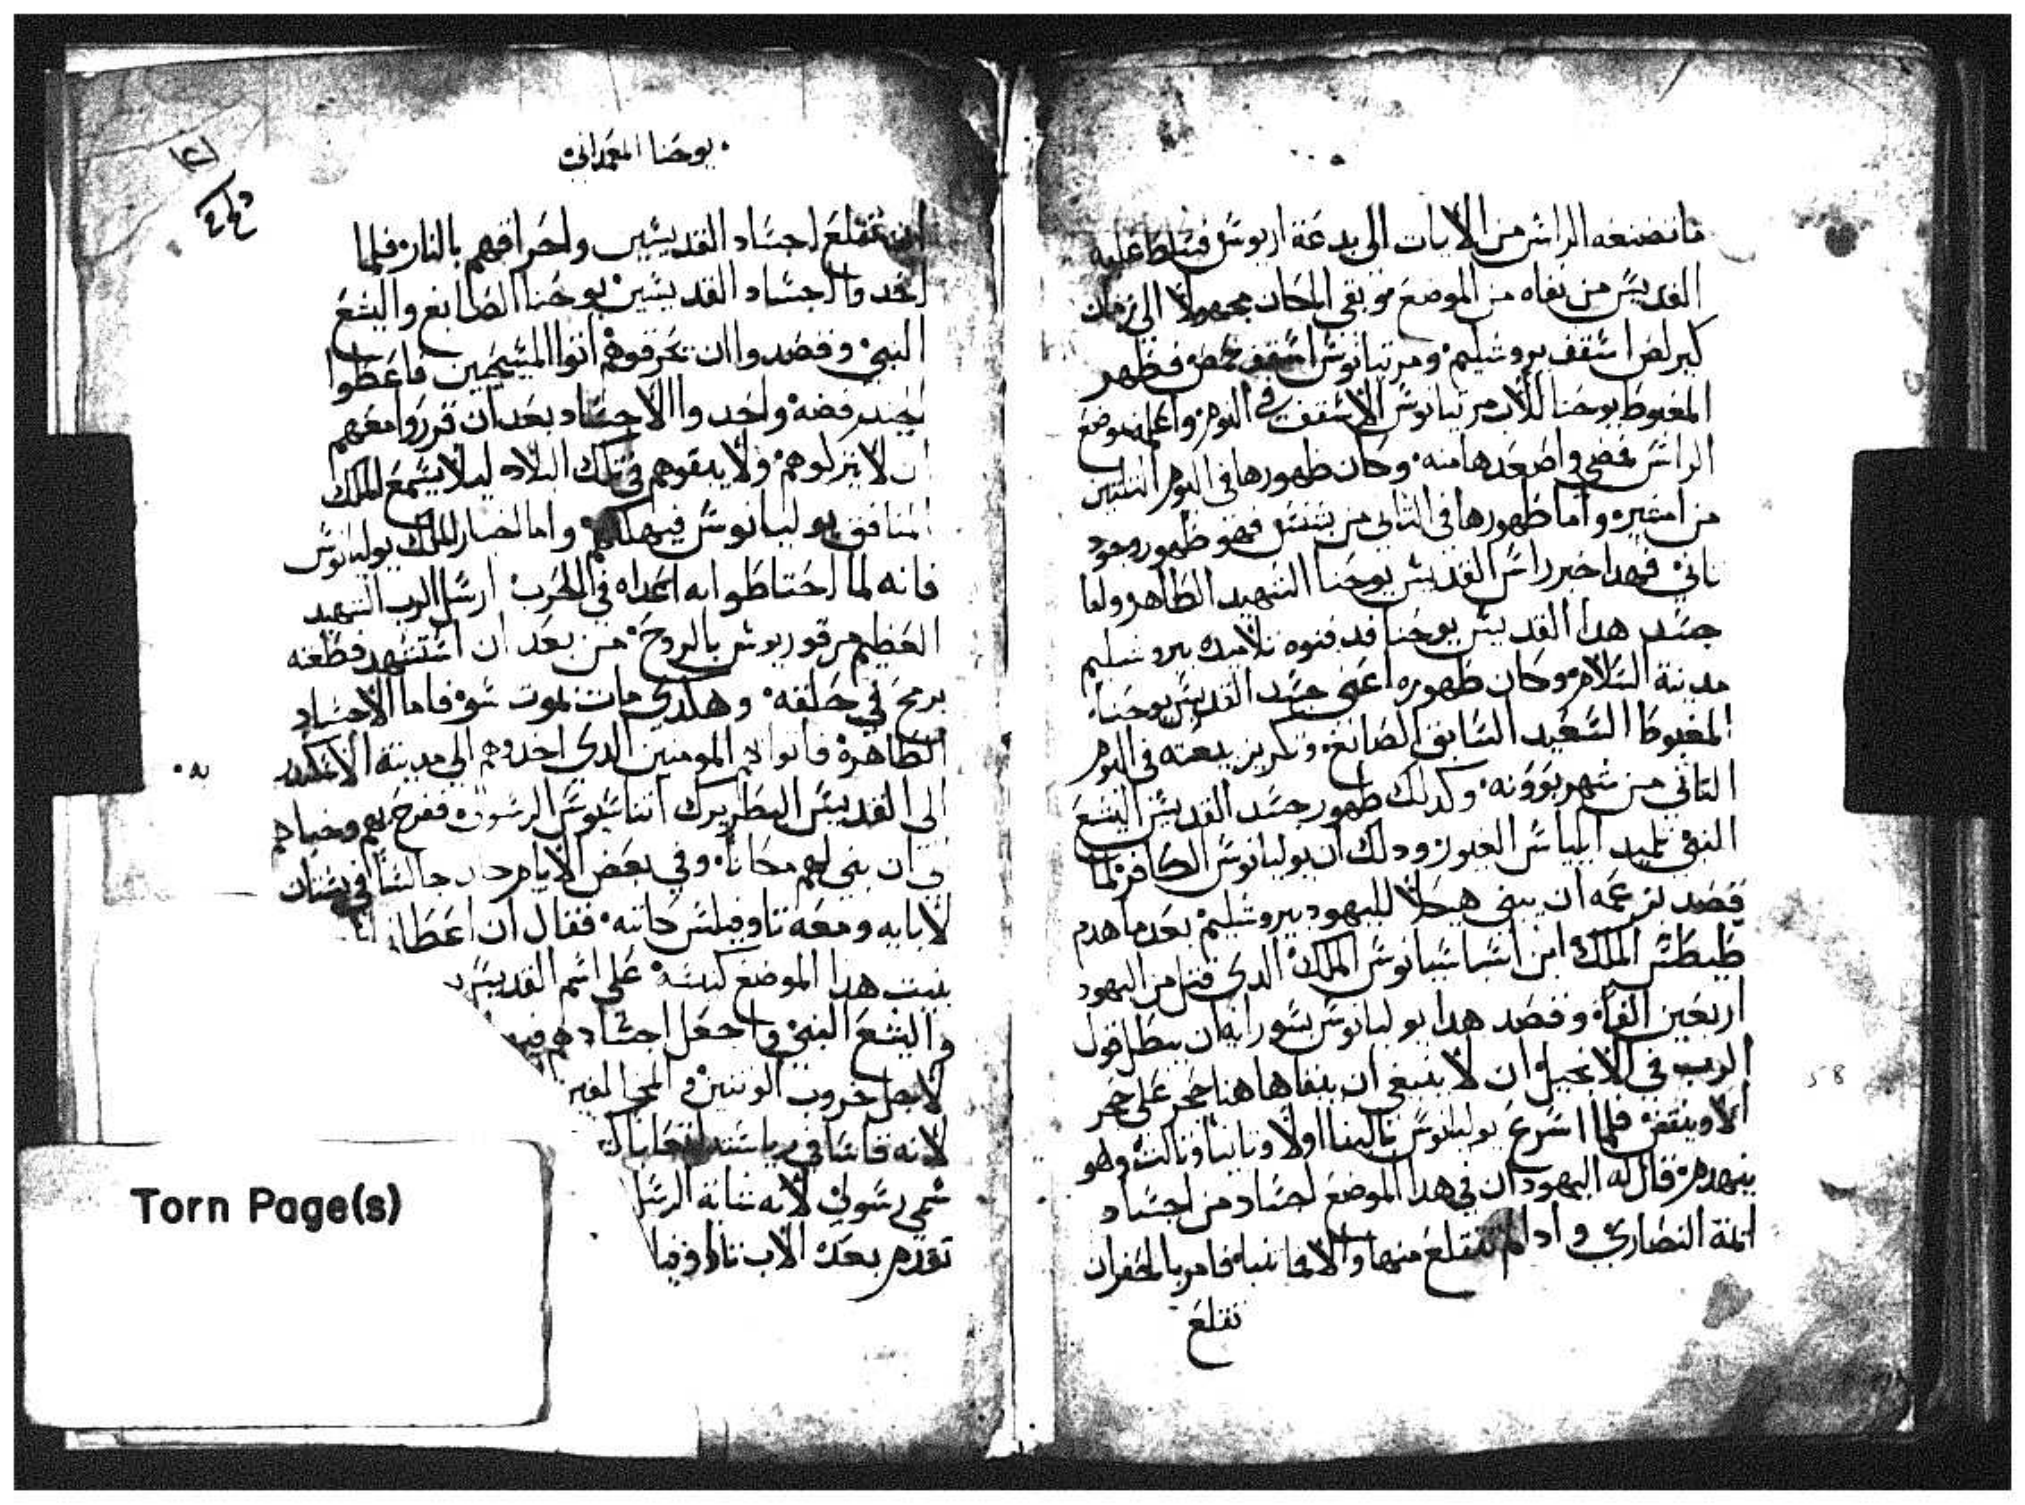 ما تصنعه الراس من الايات الى بدعة اريوس فسلط عليه
القديس من نفاه من الموضع وبقى المكان مجهولا الى زمان
كيرلص اسقف يروشليم ومرتيانوس اسقف حمص فظهر
المغبوط يوحنا للاب مرتيانوس الاسقف في النوم واعلمه بموضع
الراس فمضى واصعدها منه وكان ظهورها في اليوم الثلثين
من امشير واما ظهورها في الثاني من بشنس فهو ظهور وجود
ثاني فهدا خبر راس القديس يوحنا الشهيد الطاهر واما
جسد هدا القديس يوحنا فدفنوه تلاميده بيروشليم
مدينة السلام وكان ظهوره اعني جسد القديس يوحنا
المغبوط السعيد السابق الصابغ وتكريز بيعته في اليوم
التاني من شهر بوونه وكدلك ظهور جسد القديس اليشع
النبي تلميد ايلياس الغيور ودلك ان يوليانوس الكافر لما
قصد بزعمه ان يبني هيكلا لليهود بيروشليم بعد ما هدم
طيطس الملك ابن اسباسيانوس الملك الدي قتل من اليهود
اربعين الفا وقصد هدا يوليانوس بسو رايه ان يبطل قول
الرب في الانجيل ان لا ينبغي ان يبقا هاهنا حجر على حجر
الا وينقض فلما اسرع يوليانوس بالبنا اولا وتانيا وتالت وهو
ينهدم قال له اليهود ان في هدا الموضع اجساد من اجساد
ايمة النصارى وادا لم تقلع منها والا فما بناه فامر بالحفر ان
تقلع
يوحنا المعمداني
ان تقلع اجساد القديسين واحراقهم بالنار فلما
اخدوا اجساد القديسين يوحنا الصابغ واليشع
النبي وقصدوا ان يحرقوهم اتوا المسيحيين فاعطوا
الجند فضه واخدوا الاجساد بعد ان قرروا معهم
ان لا ينزلوهم ولا يبقوهم في تلك البلاد ليلا يسمع الملك
المنافق يوليانوس فيهلكهم واما اخبار الملك يوليانوس
فانه لما احتاطوا به اعداه في الحرب ارسل الرب الشهيد
العظيم مرقوريوس بالروح من بعد ان استشهد فطعنه
برمح في حلقه وهكدي مات بموت سو فاما الاجساد
الطاهرة فاتوا بهم المومنين الدي اخدوهم الى مدينة الاسكندر
به
الى القديس البطريرك اتناسيوس الرسولي ففرح بهم وخباهم
الى ان بني لهم مكانا وفي بعض الايام كان جالسا في بستان
لابايه ومعه تاوفيلس كاتبه فقال ان اعطا
بنيت هدا الموضع كنيسة على اسم القديس
واليشع النبي واجعل اجسادهم فيه
لانه قاسا في رياسته اتعابا ك
سمي رسولي لانه شابه الرسل
تقدم بعده الاب تاوفيلا
58
Torn Page(s)